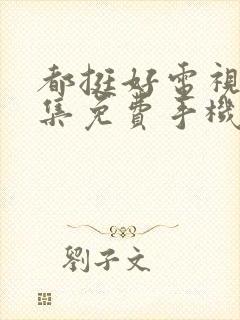 都挺好電視
集免費手機
劉子文